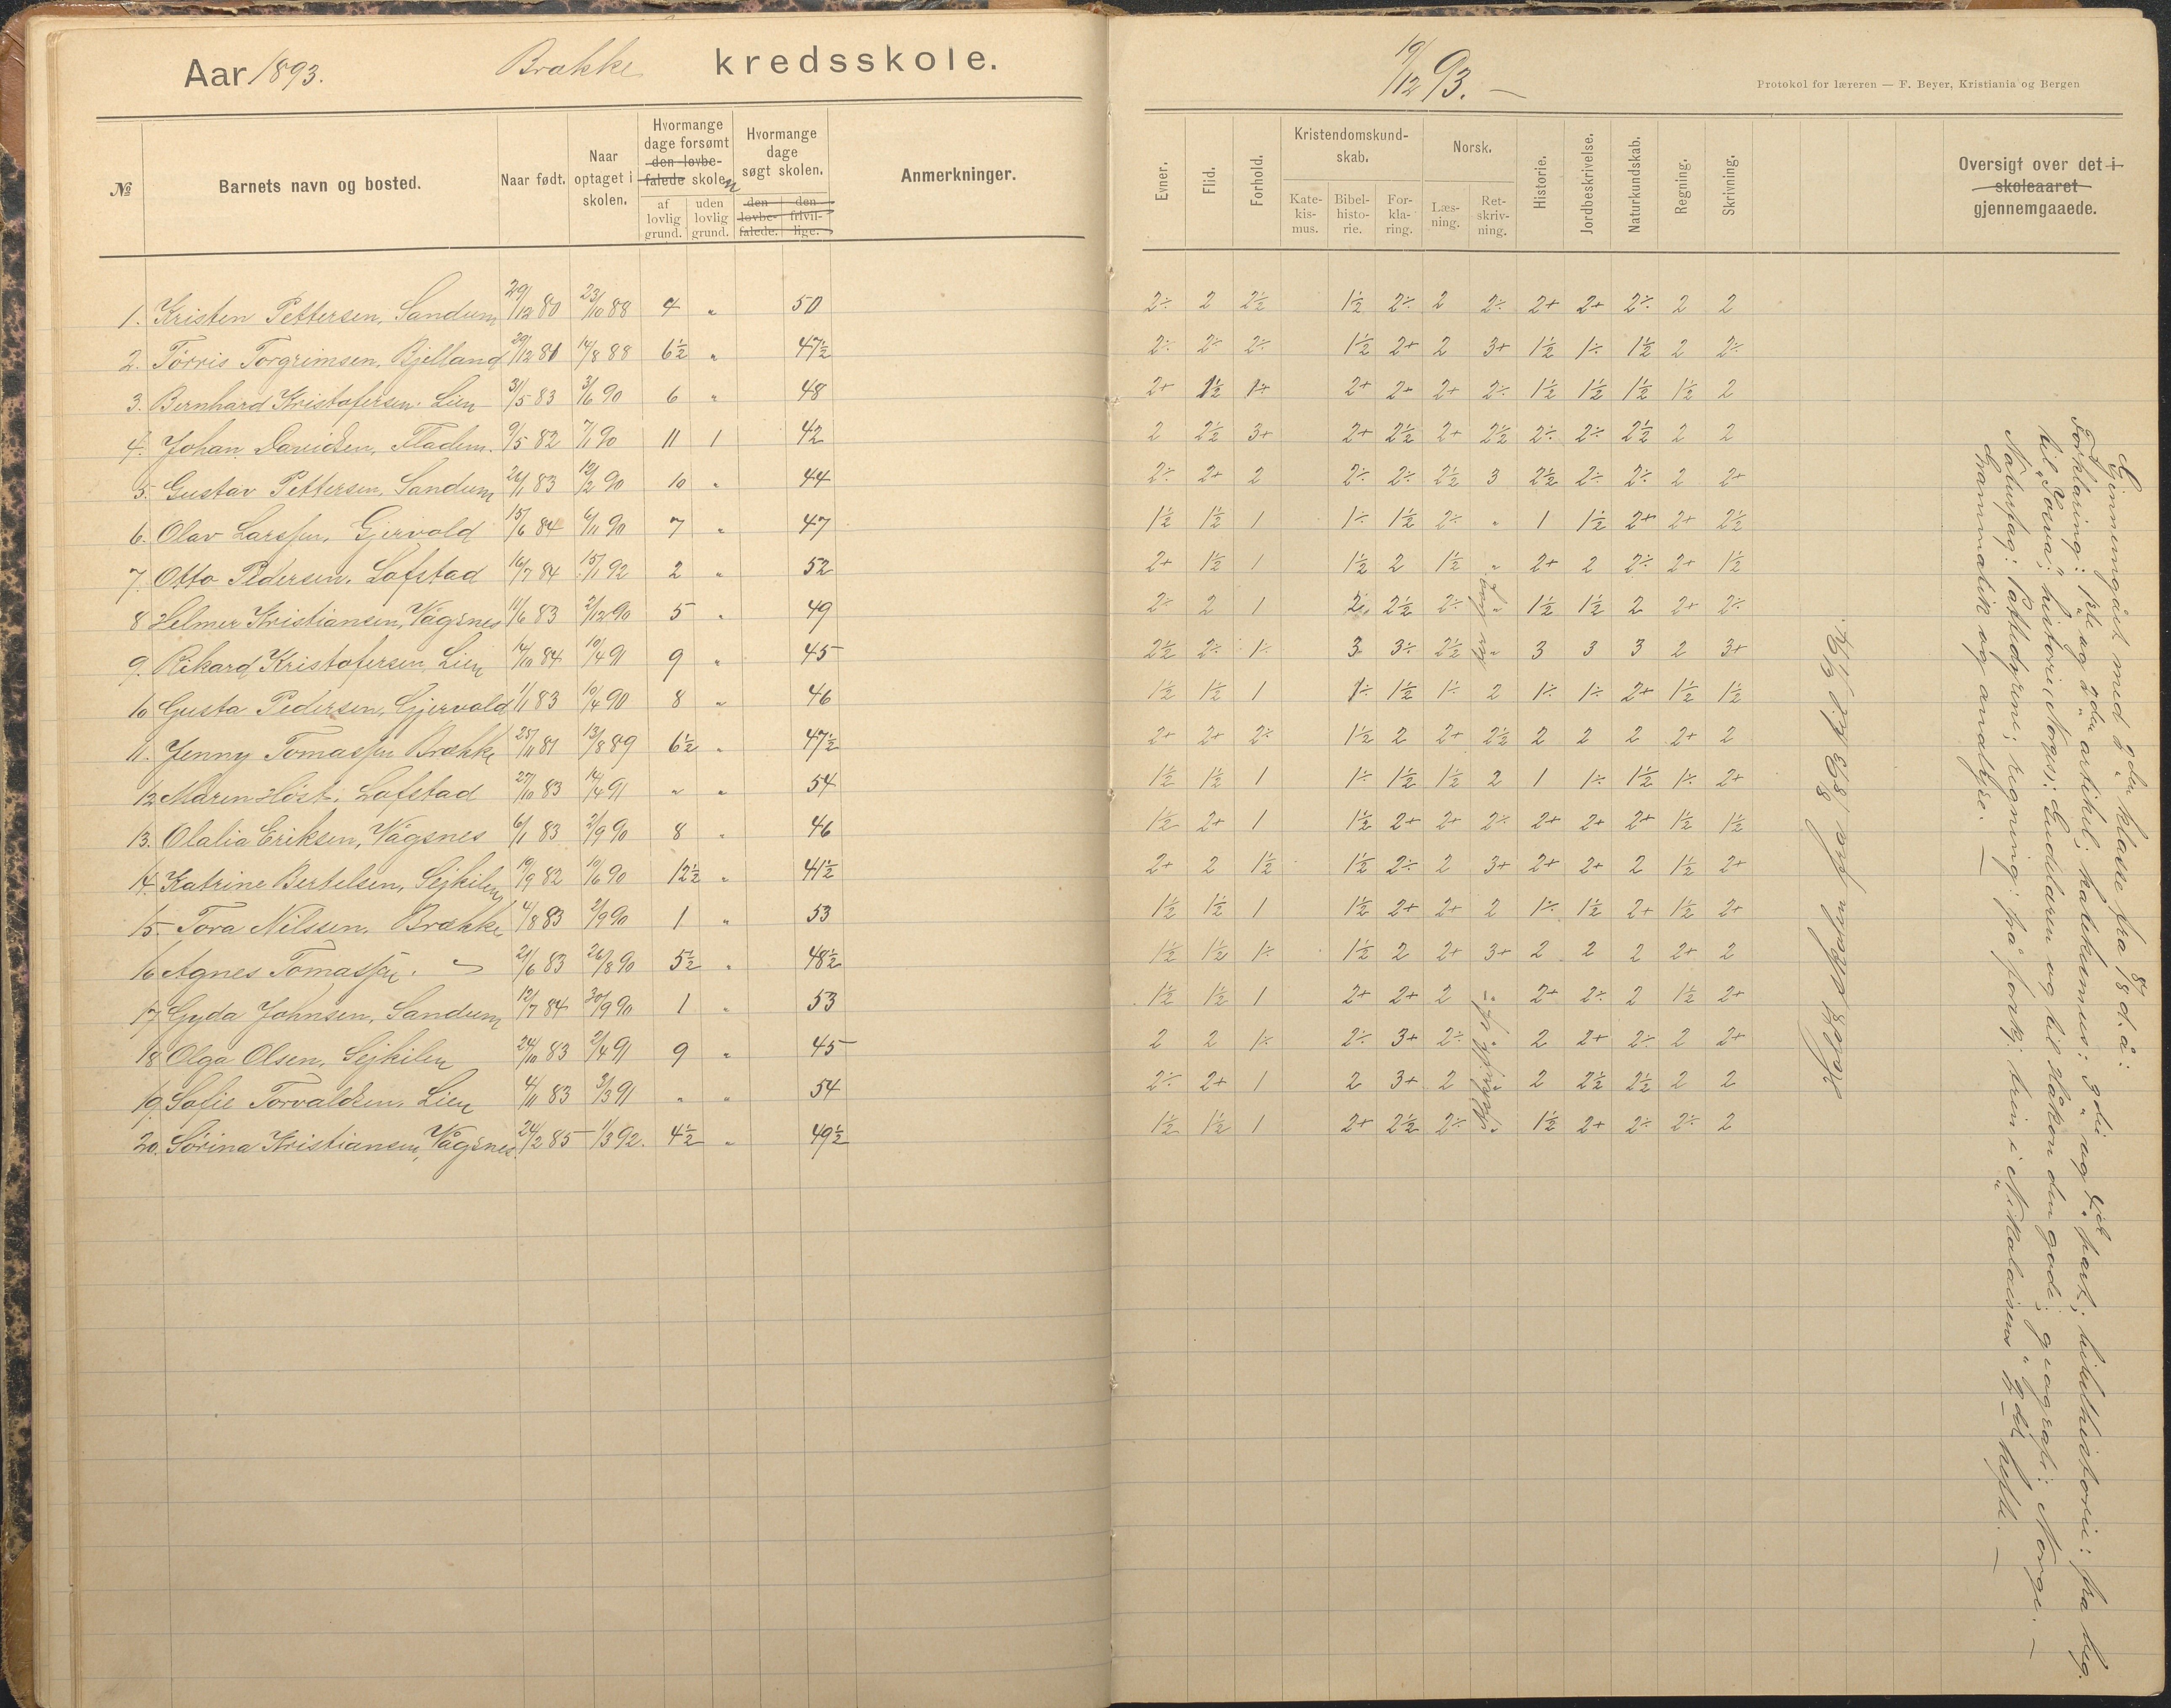 Aar 1893. Brække kredsskole.
№ Barnets navn og bosted. Naar født. Naar optaget i skolen. Hvormange dage forsømt den lovbefalede skolen af lovlig grund. uden lovlig grund. Hvormange dage søgt skolen. den lovbefalede. den frivillige. Anmerkninger.
1. Kristen Pettersen, Sandum 29/12 80 23/10 88 4 " 50
2. Tørris Torgrimsen, Bjelland 29/12 81 14/8 88 6½ " 47½
3. Bernhard Kristofersen. Lien 31/5 83 3/6 90 6 " 48
4. Johan Davidsen, Fladem. 9/5 82 7/1 90 11 1 42
5. Gustav Pettersen, Sandum 24/1 83 12/2 90 10 " 44
6. Olav Larssen, Gjervold 15/6 84 6/11 90 7 " 47
7. Otto Pedersen. Lofstad 16/7 84 15/1 92 2 " 52
8 Helmer Kristiansen, Vågsnes 11/6 83 2/12 90 5 " 49
9. Rikard Kristofersen, Lien 14/10 84 10/4 91 9 " 45
10 Gusta Pedersen, Gjervold 1/1 83 10/4 90 8 " 46
11. Jenny Tomassen Brække 25/11 81 13/8 89 6½ " 47½
12 Maren Høst, Lofstad 27/10 83 14/4 91 " " 54
13. Olalia Eriksen, Vågsnes 6/1 83 2/9 90 8 " 46
14. Katrine Bertelsen, Sejkilen 19/9 82 10/6 90 12½ " 41½
15. Tora Nilssen, Brække 4/8 83 2/9 90 1 " 53
16 Agnes Tomassen. " 21/6 83 26/8 90 5½ " 48½
17 Gyda Johnsen, Sandum 12/7 84 30/9 90 1 " 53
18 Olga Olsen, Sejkilen 24/10 83 2/4 91 9 " 45
19. Sofie Torvaldsen, Lien 4/11 83 3/3 91 " " 54
20. Sørina Kristiansen, Vågsnes. 24/2 85 1/3 92. 4½ " 49½
19/12 93. —
Protokol for læreren — F. Beyer, Kristiania og Bergen
Evner. Flid. Forhold. Kristendomskundskab. Katekismus. Bibelhistorie. Forklaring. Norsk. Læsning. Retskrivning. Historie. Jordbeskrivelse. Naturkundskab. Regning. Skrivning. Oversigt over det i skoleaaret gjennemgaaede.
2÷ 2 2½ 1½ 2÷ 2 2÷ 2+ 2+ 2÷ 2 2
2÷ 2÷ 2÷ 1½ 2+ 2 3+ 1½ 1÷ 1½ 2 2÷
2+ 1½ 1÷ 2+ 2+ 2+ 2÷ 1½ 1½ 1½ 1½ 2
2 2½ 3+ 2+ 2½ 2+ 2½ 2÷ 2÷ 2½ 2 2
2÷ 2+ 2 2÷ 2÷ 2½ 3 2½ 2÷ 2÷ 2 2+
1½ 1½ 1 1÷ 1½ 2÷ " 1 1½ 2+ 2+ 2½
2+ 1½ 1 1½ 2 1½ " 2+ 2 2÷ 2+ 1½
2÷ 2 1 2 2½ 2÷ " 1½ 1½ 2 2+ 2÷
2½ 2÷ 1÷ 3 3÷ 2½ " 3 3 3 2 3+
1½ 1½ 1 1÷ 1½ 1÷ 2 1÷ 1÷ 2+ 1½ 1½
2+ 2+ 2÷ 1½ 2 2+ 2½ 2 2 2 2+ 2
1½ 1½ 1 1÷ 1½ 1½ 2 1 1÷ 1½ 1÷ 2+
1½ 2+ 1 1½ 2+ 2+ 2÷ 2+ 2+ 2+ 1½ 1½
2+ 2 1½ 1½ 2÷ 2 3+ 2+ 2+ 2 1½ 2+
1½ 1½ 1 1½ 2+ 2+ 2 1÷ 1½ 2+ 1½ 2+
1½ 1½ 1÷ 1½ 2 2+ 3+ 2 2 2 2+ 2
1½ 1½ 1 2+ 2+ 2 " 2+ 2÷ 2 1½ 2+
2 2 1÷ 2÷ 3+ 2÷ 2 2+ 2÷ 2 2+
2÷ 2+ 1 2 3+ 2 " 2 2½ 2½ 2 2
1½ 1½ 1 2+ 2½ 2÷ " 1½ 2+ 2÷ 2÷ 2
Gjennemgået med 2den klasse fra 8/8 d. å:
Forklaring: 1ste og 2den artikel; katekismus: 3die og 4de part; bibelhistorie: fra beg.
til "Josva"; historie (Norges): Sudderen og til Håkon den gode; geografi: Norge. —
Naturfag: Pattedyrene; regning: på forskj. trin i "Nikolaisens" 1ste — 4de hefte. —
Grammatik og analyse. —
Holdt skolen fra 8/8 93 til